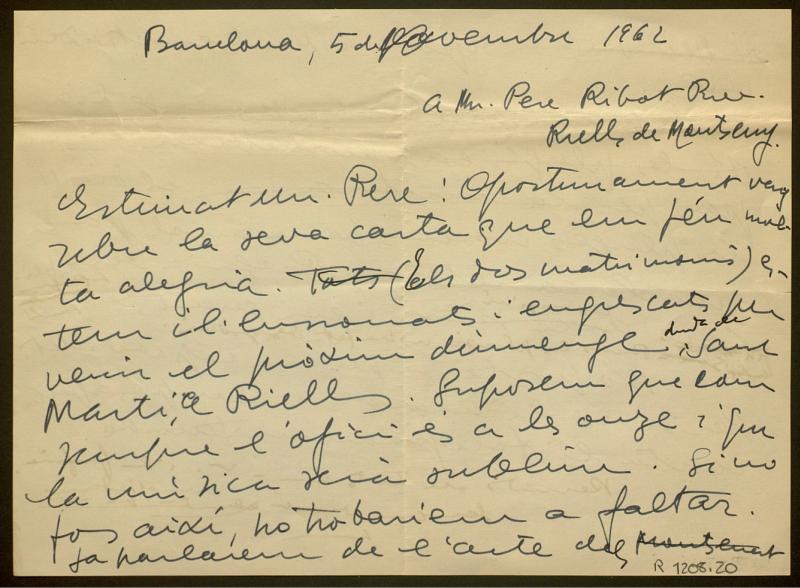 Barcelona, 5 de Novembre 1962
a Mn. Pere Ribot Prev.
Riells de Montseny.
Estimat Mn. Pere: Oportunament vaig
rebre la seva carta que em féu mol-
ta alegria. Tots (Els dos matrimonis) es-
tem il·lusionats i engrescats per
venir el pròxim diumenge diada de Sant
Martí, a Riells. Suposem que com
sempre l'ofici és a les onze i que
la música serà sublim. Si no
fos així, ho trobariem a faltar.
Ja parlarem de l'arte del Montserrat
R 1208.20